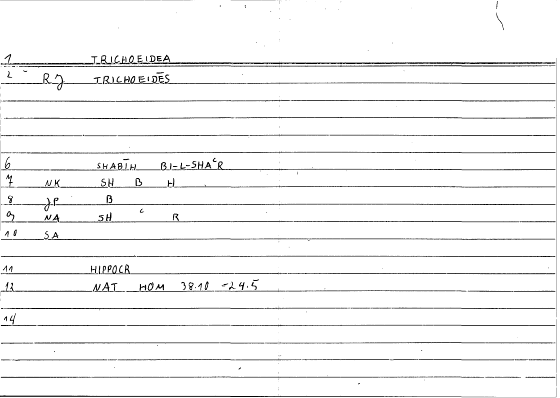 1 TRICHOEIDEA
2 RJ TRICHOEIDĒS
6 SHABĪH BI-L-SHAᶜR
7 NK SH B H
8 JP B
9 NA SH ᶜ R
10 SA
11 HIPPOCR
12 NAT HOM 38.10 -24.5
14